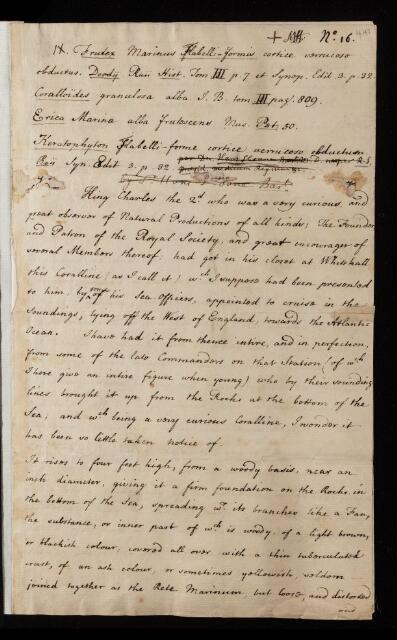 + NH N.o 16.
IX. Frutex Marinus Flabelli-formis cortice verrucoso
obductus. Doody Raii Hist. Tom III p. 7 et Synop. Edit. 3. p. 32.
Coralloides granulosa alba J. B. tom III pag. 809.
Erica Marina alba frutescens Mus. Pet. 50.
Keratophyton flabelli-forme cortice verrucoso obductum
Raii Syn. Edit 3. p. 32
King Charles the 2.d who was a very curious and
great observor of Natural Productions of all kinds; The Founder
and Patron of the Royal Society, and great encourager of
several Members thereof; had got in his closet at Whitehall
this Coralline (as I call it) w.ch I suppose had been presented
to him, by some of his Sea Officers, appointed to cruise in the
Soundings, lying off the West of England, towards the Atlantic
Ocean. I have had it from thence entire, and in perfection,
from some of the late Commanders on that Station (of w.ch
I here give an entire figure when young) who by their sounding
lines brought it up from the Rocks at the bottom of the
Sea; and w.ch being a very curious Coralline, I wonder it
has been so little taken notice of.
It rises to four feet high, from a woody basis, near an
inch diameter, giving it a firm foundation on the Rocks, in
the bottom of the Sea, spreading w.th its branches like a Fan,
the substance, or inner part of w.ch is woody, of a light brown,
or blackish colour, covered all over with a thin tuberculated
crust, of an ash colour, or sometimes yellowish, seldom
joined together as the Rete Marinum, but loose, and distorted
and